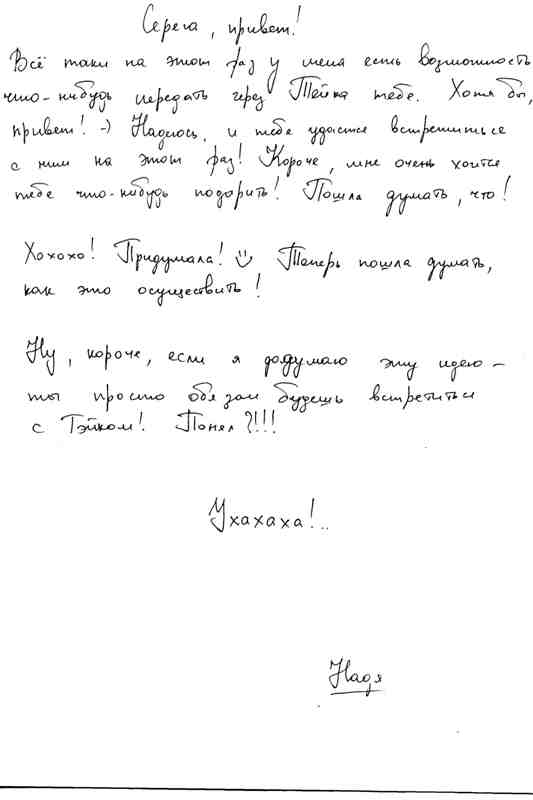 Серега, привет!
Всё таки на этот раз у меня есть возможность
что-нибудь передать через Тейка тебе. Хотя бы,
привет! :-) Надеюсь, и тебе удастся встретиться
с ним на этот раз! Короче, мне очень хочется
тебе что-нибудь подарить! Пошла думать, что!
Хохохо! Придумала! Теперь пошла думать,
как это осуществить!
Ну, короче, если я додумаю эту идею -
ты просто обязан будешь встретиться
с Тэйком! Понял?!!!
Ухахаха!..
Надя